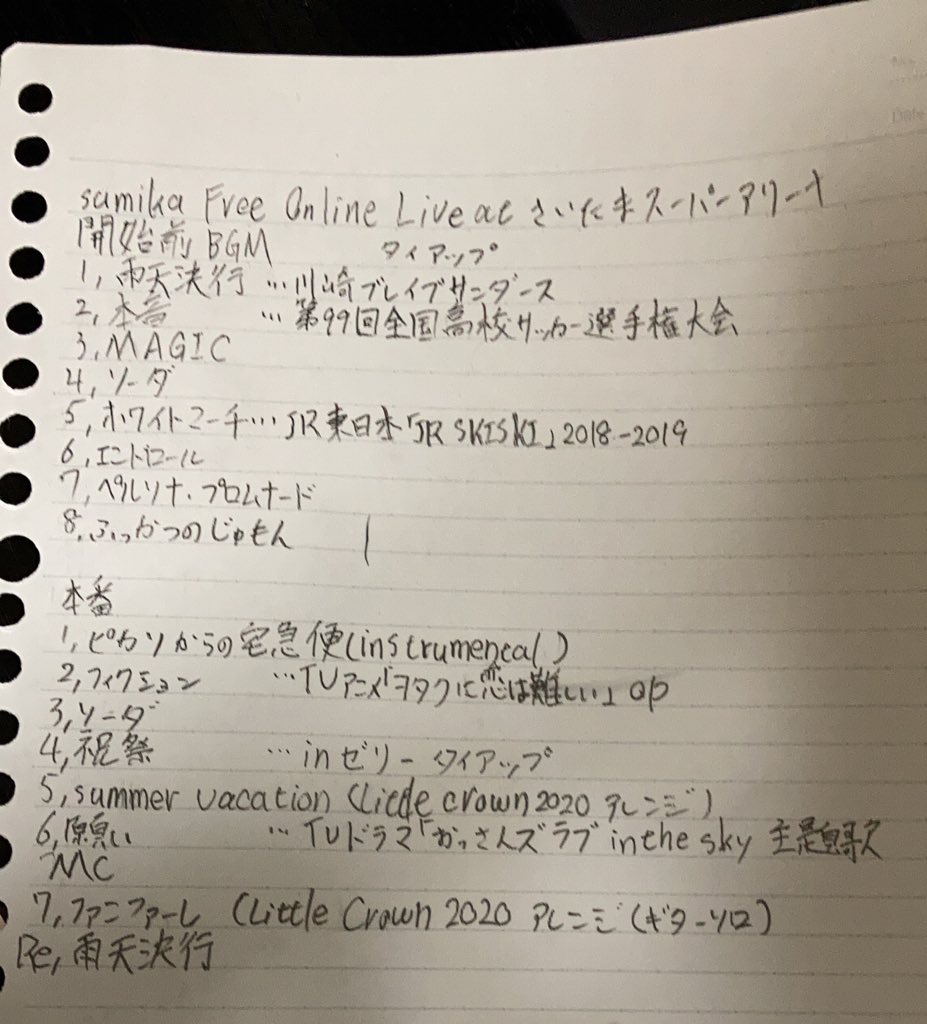 sumika Free Online Live at さいたまスーパーアリーナ
開始前BGM タイアップ
1, 雨天決行 …川崎ブレイブサンダース
2, 本音 …第99回全国高校サッカー選手権大会
3, MAGIC
4, ソーダ
5, ホワイトマーチ…JR東日本「JR SKISKI」2018-2019
6, エンドロール
7, ペルソナ・プロムナード
8, ふっかつのじゅもん
本番
1, ピカソからの宅急便(instrumental)
2, フィクション …TVアニメ「ヲタクに恋は難しい」OP
3, ソーダ
4, 祝祭 …inゼリータイアップ
5, summer vacation (Little crown 2020 アレンジ)
6, 願い …TVドラマ「おっさんズラブ in the sky 主題歌
MC
7, ファンファーレ (Little Crown 2020 アレンジ(ギターソロ)
Re, 雨天決行